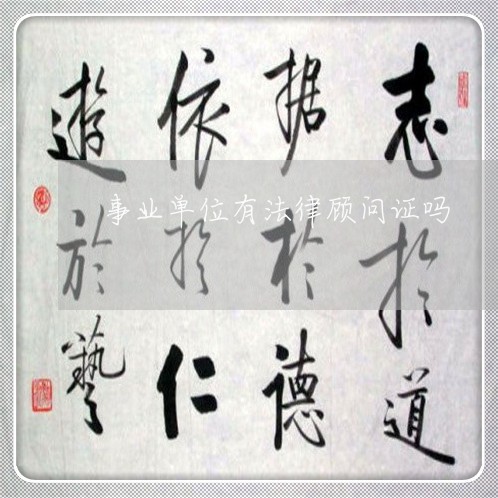 志於道
据於德
依於仁
遊於藝
事业单位有法律顾问证吗